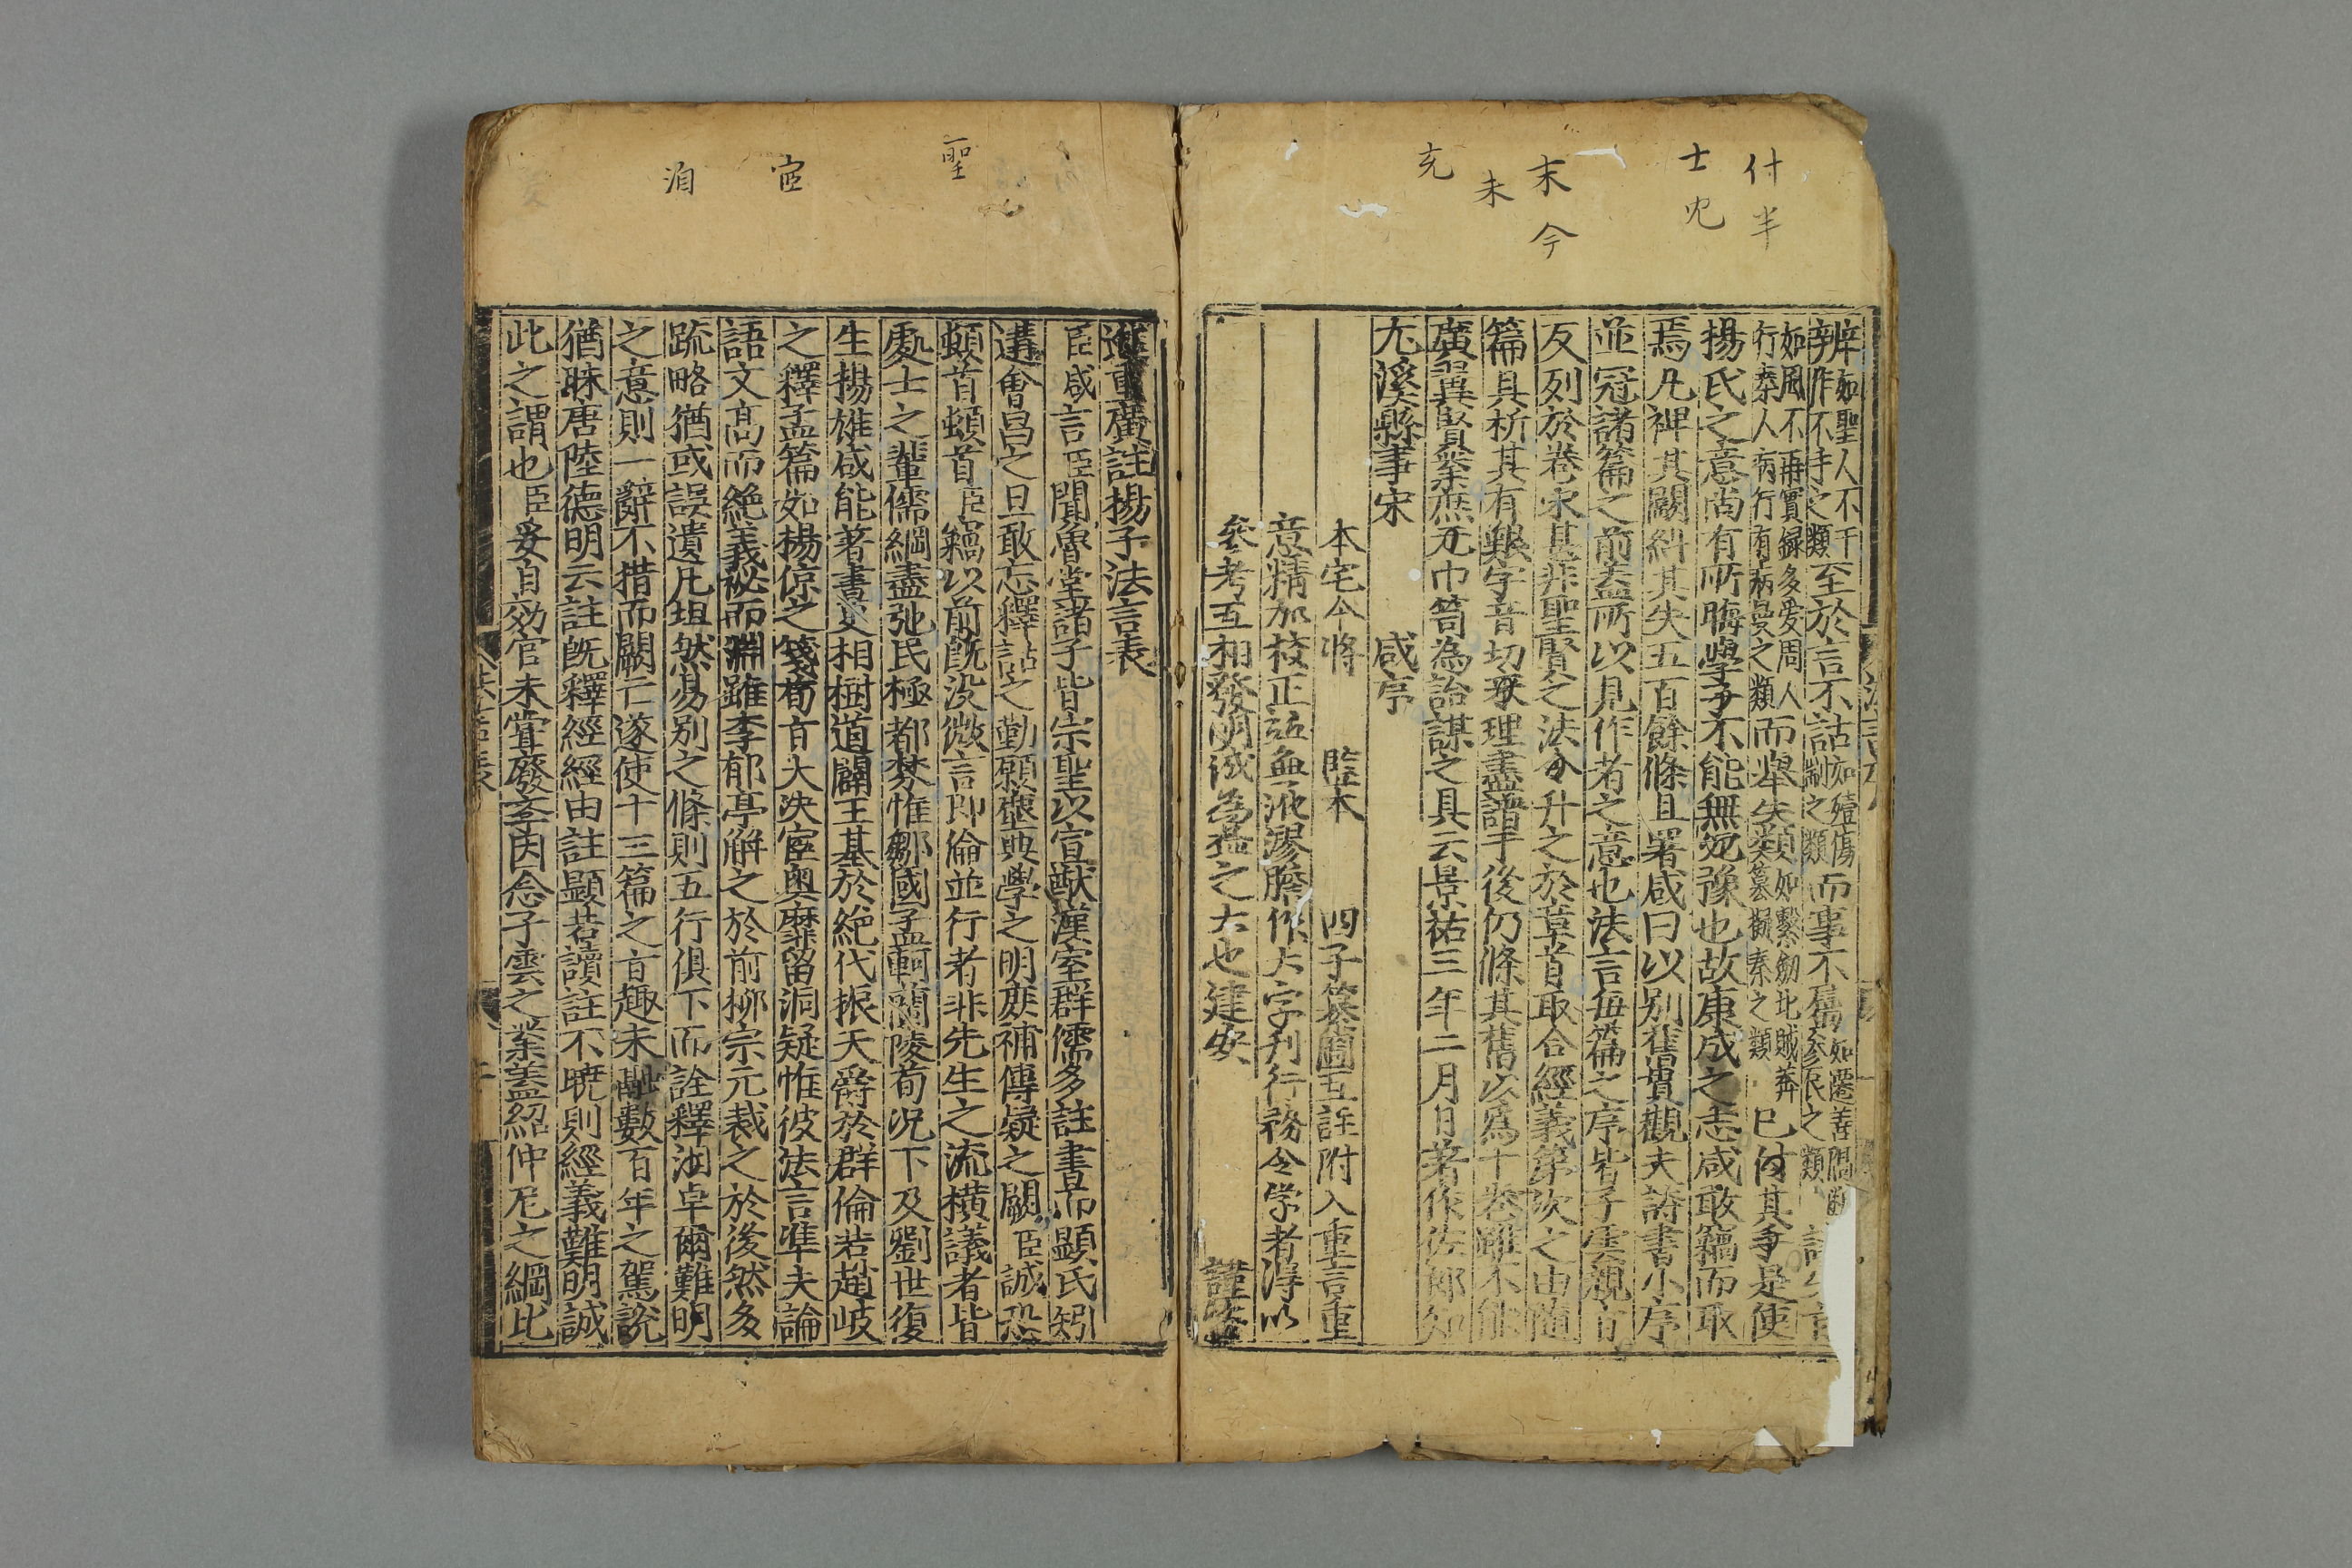 付半
士兇
末今
未
充
辨如聖人不干
辨作不手之類至於言不詁如殪傷
制之類而事不舊如遷善
參辰之類
如鳳不再實録多愛周人
行秦人病行有病曼之類而舉失類如繫劒比賊莽
篡擬秦之類已何其爭是使
揚氏之意尚有所晦學子不能無宛豫也故康成之志咸敢竊而取
焉凡裨其闕糾其失五百餘條且署咸曰以別舊貫觀夫詩書小序
並冠諸篇之前盖所以見作者之意也法言每篇之序皆子雲親旨
反列於卷末甚非聖賢之法今升之於章首取合經義第次之由隨
篇具析其有艱字音切釈理盡譜于後仍條其舊以爲十卷雖不能
廣翼賢業庶亢巾笥為詒謀之具云景祐三年二月日著作佐郎知
尤溪縣事宋 咸序
本宅今將 監本 四子纂圖互註附入重言重
意精加校正茲無訛謬謄作大字刋行務令学者得以
參考互相發明誠為益之大也建安 謹咨
聖
宧
洦
進重廣註揚子法言表
臣咸言臣聞魯堂諸子皆宗聖以宣猷漢室群儒多註書而顯氏矧
遘會昌之旦敢忘釋詁之勤願塵典學之明庶補傳疑之闕臣誠恐
頓首頓首臣竊以前旣没微言即淪並行者非先生之流横議者皆
處士之輩儒綱盡弛民極都棼惟鄒國孟軻蘭陵荀况下及劉世復
生揚雄咸能著書更相樹道闢王基於絶代振天爵於群倫若趙岐
之釋孟篇如楊倞之箋荀旨大決宧奥靡留洞疑惟彼法言準夫論
語文髙而絶義祕而淵雖李郁亭解之於前柳宗元裁之於後然多
疏略猶或誤遺凡坦然易别之條則五行俱下而詮釋洦卓爾難明
之意則一辭不措而闕亡遂使十三篇之旨趣未融數百年之駕說
猶昧唐陸德明云註旣釋經經由註顯若讀註不曉則經義難明誠
此之謂也臣妥自効官未嘗廢斈因念子雲之業盖紹仲尼之綱比